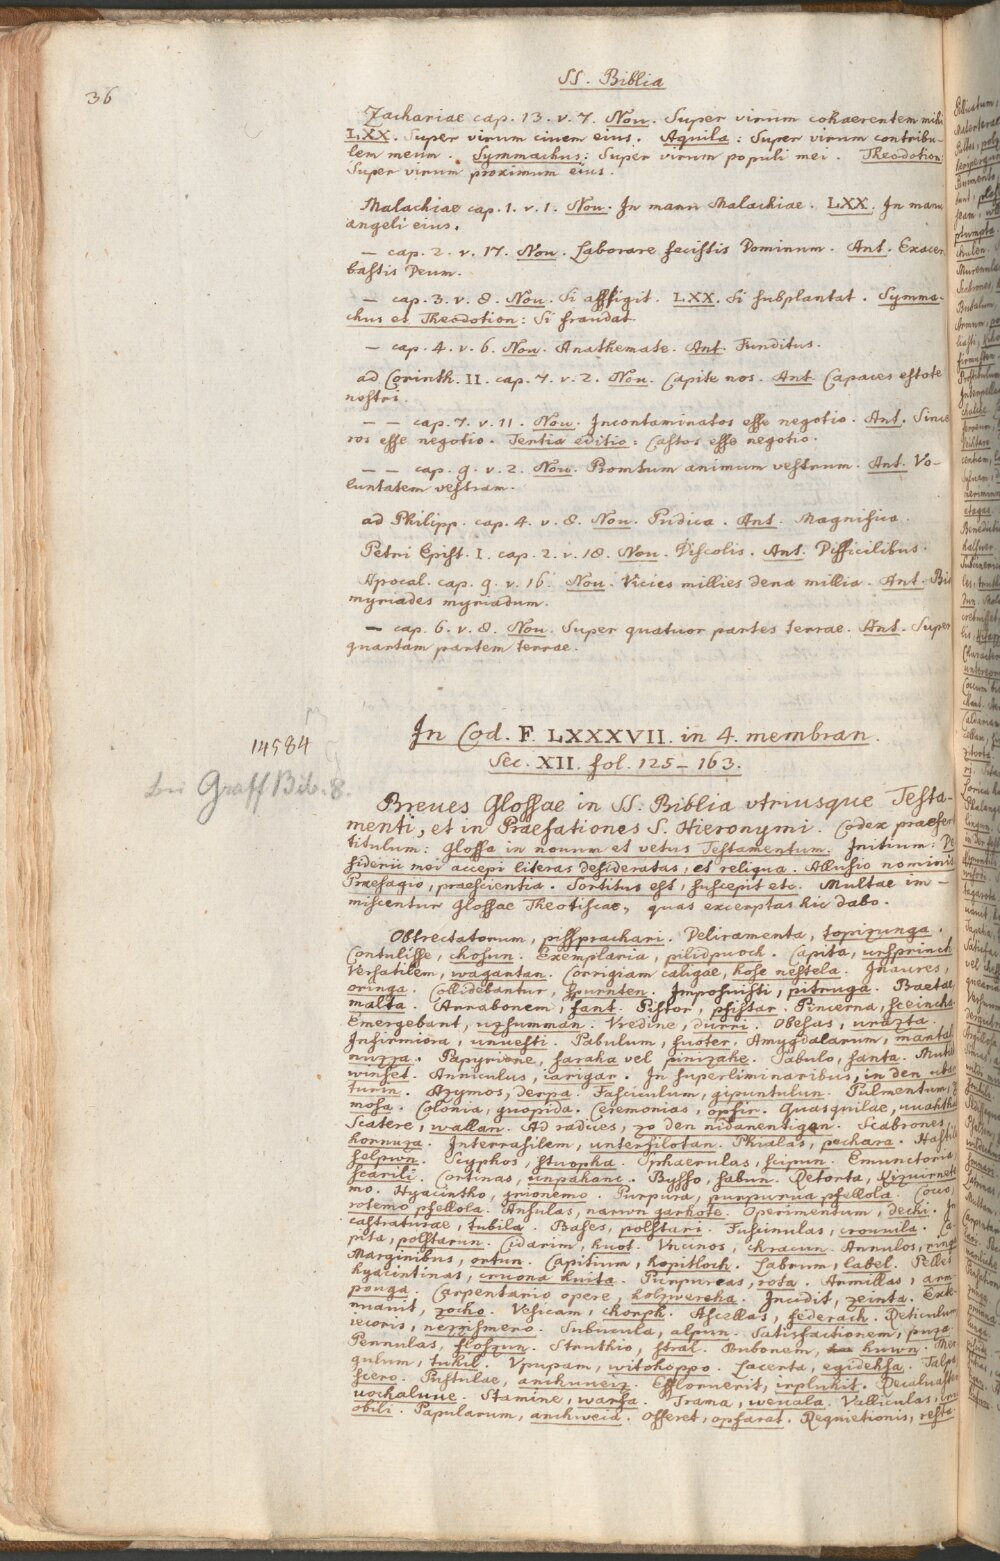 36
SS. Biblia
Zachariae cap. 13. v. 7. Nou. Super virum cohaerentem mihi
LXX. Super virum ciuem eius. Aquila: Super virum contribu-
lem meum. Symmachus: Super virum populi mei. Theodotion:
Super virum proximum eius.
Malachiae cap. 1. v. 1. Nou. In manu Malachiae. LXX. In manu
angeli eius.
— cap. 2. v. 17. Nou. Laborare fecistis Dominum. Ant. Exacer-
bastis Deum.
— cap. 3. v. 8. Nou. Si affigit. LXX. Si subplantat. Symma-
chus et Theodotion: Si fraudat.
— cap. 4. v. 6. Nou. Anathemate. Ant. Funditus.
ad Corinth. II. cap. 7. v. 2. Nou. Capite nos. Ant. Capaces estote
nostri.
— — cap. 7. v. 11. Nou. Incontaminatos esse negotio. Ant. Since
ros esse negotio. Tertia editio: Castos esse negotio.
— — cap. 9. v. 2. Nou. Promtum animum vestrum. Ant. Vo-
luntatem vestram.
ad Philipp. cap. 4. v. 8. Nou. Pudica. Ant. Magnifica.
Petri Epist. I. cap. 2. v. 18. Nou. Discolis. Ant. Difficilibus.
Apocal. cap. 9. v. 16. Nou. Vicies millies dena millia. Ant. Bis
myriades myriadum.
— cap. 6. v. 8. Nou. Super quatuor partes terrae. Ant. Super
quartam partem terrae.
In Cod. F. LXXXVII. in 4. membran.
Sec. XII. fol. 125-163.
14584
bei Graff Bib. 8.
Breues Glossae in SS. Biblia vtriusque Testa-
menti, et in Praefationes S. Hieronymi. Codex praefert
titulum: Glossa in nouum et vetus Testamentum. Initium: De
siderii mei accepi literas desideratas, et reliqua. Allusio nominis
Praesagio, praescientia. Sortitus est, suscepit etc. Multae im-
miscentur Glossae Theotiscae, quas excerptas hic dabo.
Obtrectatorum, pissprachari. Deliramenta, topizunga.
Contulisse, chosun. Exemplaria, pilidpuoch. Capita, ursprinch
Versatilem, wagantan. Corrigiam caligae, hose nestela. Inaures,
oringa. Collidebantur, spurnten. Imposuisti, pitruga. Braetea,
malta. Annabonem, fant. Pistor, phistar. Pincerna, sceincho.
Emergebant, uzsumman. Vredine, durri. Obesas, urazta.
Infirmiora, unuesti. Pabulum, fuoter. Amygdalarum, mantal
nuzza. Papyrione, saraha vel pinizahe. Sabulo, santa. Mutili
winset. Anniculus, iarigar. In superliminaribus, in den uber
turin. Azymos, derpa. Fasciculum, gipuntulun. Pulmentum,
mosa. Colonia, guopida. Ceremonias, opfir. Quasquilae, uuahtha
Scatere, wallan. Ad radices, zo den nidanentigen. Scabrones,
hornuza. Interrasilem, unterfilotan. Phialas, pechara. Hastile
helpwn. Scyphos, stuopha. Sphaerulas, scipun. Emunctoria,
scarili. Cortinas, umpahanc. Bysso, sabun. Retorta, kizuirnete
mo. Hyacintho, gruonemo. Purpura, purpurua phellola. Coco,
rotemo phellola. Ansulas, narwn garhote. Operimentum, dechi. In
castraturae, tubila. Bases, polstari. Fuscinulas, crouuila. Ca-
pita, polstarun. Cidarim, huot. Vncinos, chracun. Annulos, ringa
Marginibus, ortun. Capitium, hopitloch. Labrum, label. Pelles
hyacintinas, cruona huita. Purpureas, rota. Armillas, arm-
pouga. Carpentario opere, holzwercha. Incudit, zeinta. Exte-
nuauit, zocho. Vesicam, chroph. Ascellas, federach. Reticulum
iecoris, nezzismero. Subucula, alpun. Satisfactionem, puza.
Pennulas, flozzun. Struthio, struz. Bubonem, huwn. Mer-
gulum, tuhil. Vpupam, witohoppo. Lacerta, egidehsa. Talpa,
scero. Pustulae, anchuueiz. Effloruerit, irpluhit. Decaluatio
uochaluue. Stamine, warfa. Trama, weuala. Valliculas,
obili. Papularum, anchweiz. Offeret, opfarat. Requietionis, resta.